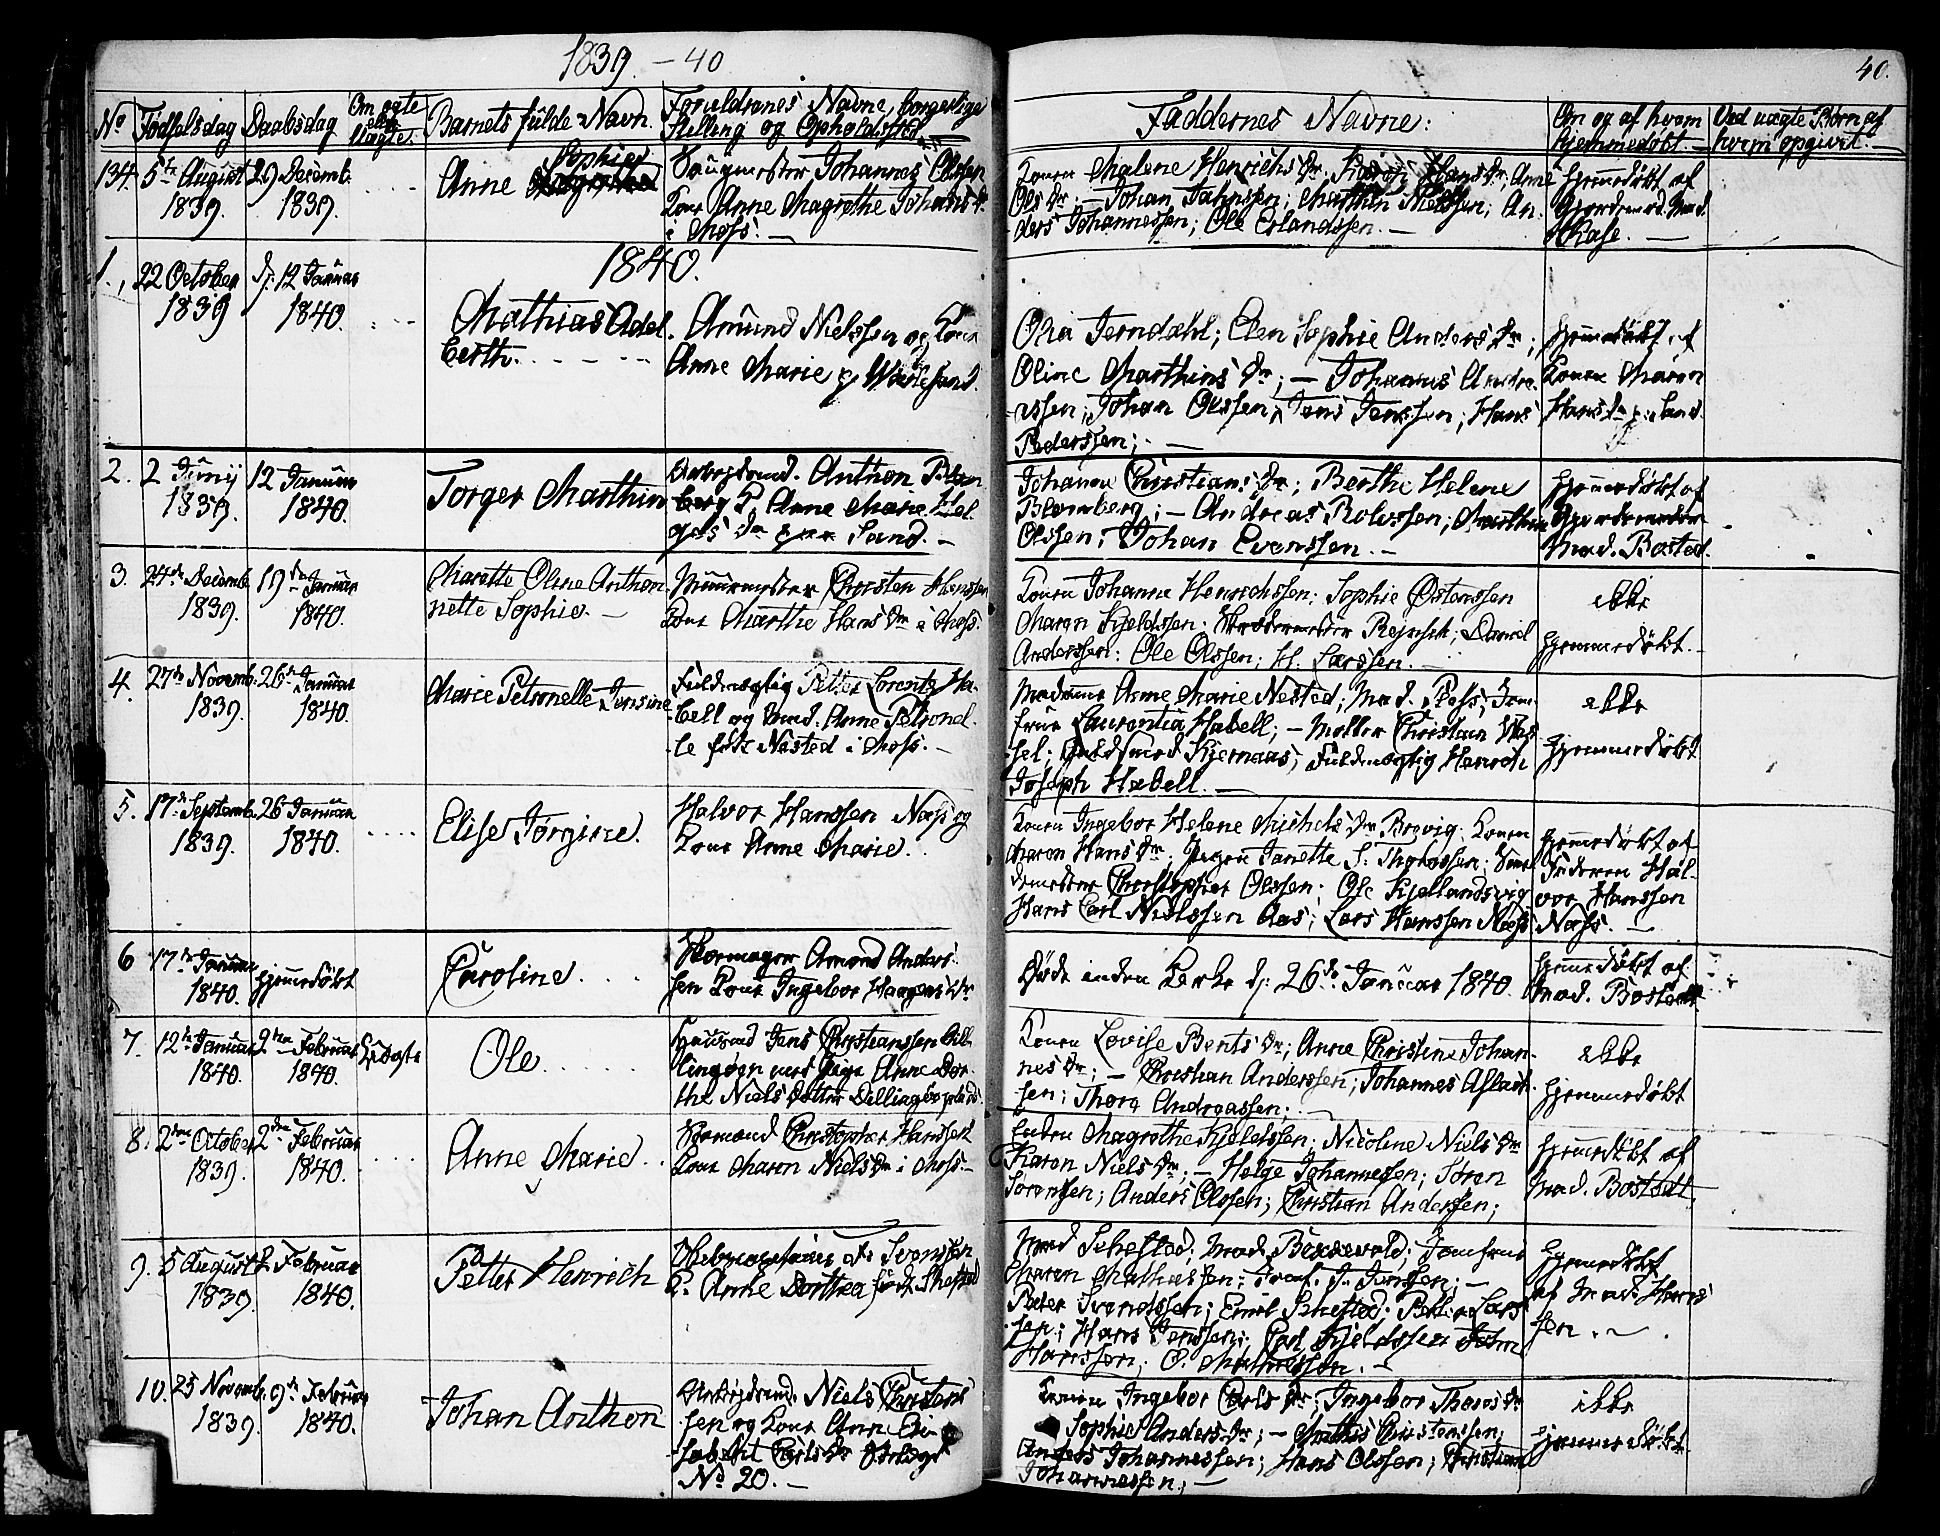 1839. - 40
40.
No Fødselsdag Daabsdag Om ægte eller Uægte. Barnets fulde Navn. Forældrenes Navne, borgerlige Stilling og Opholdssted
Faddernes Navne: Om og af hvem hjemmedøbt. Ved uægte Børn af hvem opgivet.
134. 5te August 1839. 29 Decemb. 1839.
Anne Sophie
Johannes Olsen
Kone Anne Magrethe Johans Dr.
i Moss.
Konen Malene Henrichs Dr. Karen Hans Dr, Anne
Ols Dr. - Johan Jahnsen; Marthin Nielssen; An-
ders Johannessen; Ole Erlandssen. -
hjemmedøbt af
Gjordemod. Mad.
1840.
1., 22 October 1839 d. 12 Januar 1840.
Mathias Adel-
berth.
Amund Nielssen og Kone
Anne Marie
Olia Jerndahl; Elen Sophie Anders Dr;
Oline Marthins Dr; - Johannes Andre-
assen; Johan Olssen; Jens Jenssen; Hans
Pederssen; -
hjemmedøbt af
Konen Maren
Hans Dr
2. 2 Junij 1839. 12 Januar 1840.
Torger Marthin
Anthon
Anne Marie Hel-
Sand. -
Johanne Christians Dr; Berthe Helene
Blomberg; - Andreas Rolvssen; Marthin
Olssen; Johan Evenssen. -
hjemmedøbt af
Gjordemoder
Mad. Bosted.
3. 24de Decemb. 1839. 19de Januar 1840.
Marette Oline Anthon-
nette Sophie. -
Muurmester Christen Henssen
Kone Marthe Hans Dr i Moss.
Konen Johanne Henrichssen; Sophie Østenssen
Maren Kjeldssen; David
Anderssen: Ole Olssen; H. Larssen. -
ikke
hjemmedøbt.
4. 27de Novemb. 1839. 26de Januar 1840.
Marie Petronelle Jensine
Fuldmægtig Petter Lorentz Ha-
bell og Mad. Anne Petronel-
le født Nested i Moss. -
Madame Anne Marie Nested; Mad. Pless; Jom-
frue Laurentia Habell; - Møller Christian
Guldsmed Kjernaas; Fuldmægtig Henrich
Joseph Habell. -
ikke
hjemmedøbt
5. 17de Septemb. 1839. 26 Januar 1840.
Elise Jørgine.
Halvor Hanssen Næss og
Kone Anne Marie.
Konen Ingebor Helene Michels Dr Brevig. Konen
Maren Hans Dr. Pigen Janette
Christopher Olssen; Ole Kjellandsvig
Hans Carl Nielssen Aas; Lars Hanssen Næss
hjemmedøbt af
Faderen Hal-
vor Hanssen
Næss. -
6 17de Januar 1840. hjemmedøbt
Caroline
Skomager Amond Anders-
sen Kone Ingebor Haagens Dr
Døde inden Kerke d. 26de Januar 1840.
hjemmedøbt af
Mad. Bostedt
7. 12te Januar 1840. 2den Februar 1840. Uægte
Ole
Huusmd Jens Christianssen Dil-
lingøen med Pige Anne Dor-
the Niels Datter Dillingøplads.
Konen Lovise Bents Dr; Anne Christine Johan-
nes Dr; - Christian Anderssen; Johannes Aslak-
sen; Thore Andreassen; -
ikke
hjemmedøbt
8. 2den October 1839. 2den Februar 1840.
Anne Marie
Christopher Hanssen
Kone Maren Niels Dr i Moss. -
Enken Magrethe Kjeldssen; Nicoline Niels Dr
Karen Niels Dr; - Helge Johannessen; Søren
Sørenssen; Anders Olssen; Christian Anderssen;
hjemmedøbt af
Mad. Bostedt.
9. 5 August 1839. 2 Februar 1840.
Petter Henrich
Svenssen
K. Anne Dorthea født Shested
Mad Sehested; Mad. Jomfrue
Maren Mathiassen; Jomf. J. Jenssen; -
Peter Svendssen; Emil Sehested; Petter Lars-
sen; Hans Jenssen; Carl Kjeldssen John
Hanssen; O. Mathiessen. -
hjemmedøbt
af Mad. Hans-
sen. -
10. 25 Novemb. 1839. 9de Februar 1840.
Johan Anthon
Niels Christens-
sen og Kone Anne Eli-
sabeht Carls Dr
No 20. -
Konen Ingebor Carls Dr; Ingebor Thores Dr
Sophie Anders Dr; - Mathis Christenssen;
Anders Johannessen; Hans Olssen; Christian
Johannessen; -
ikke
hjemmedøbt.